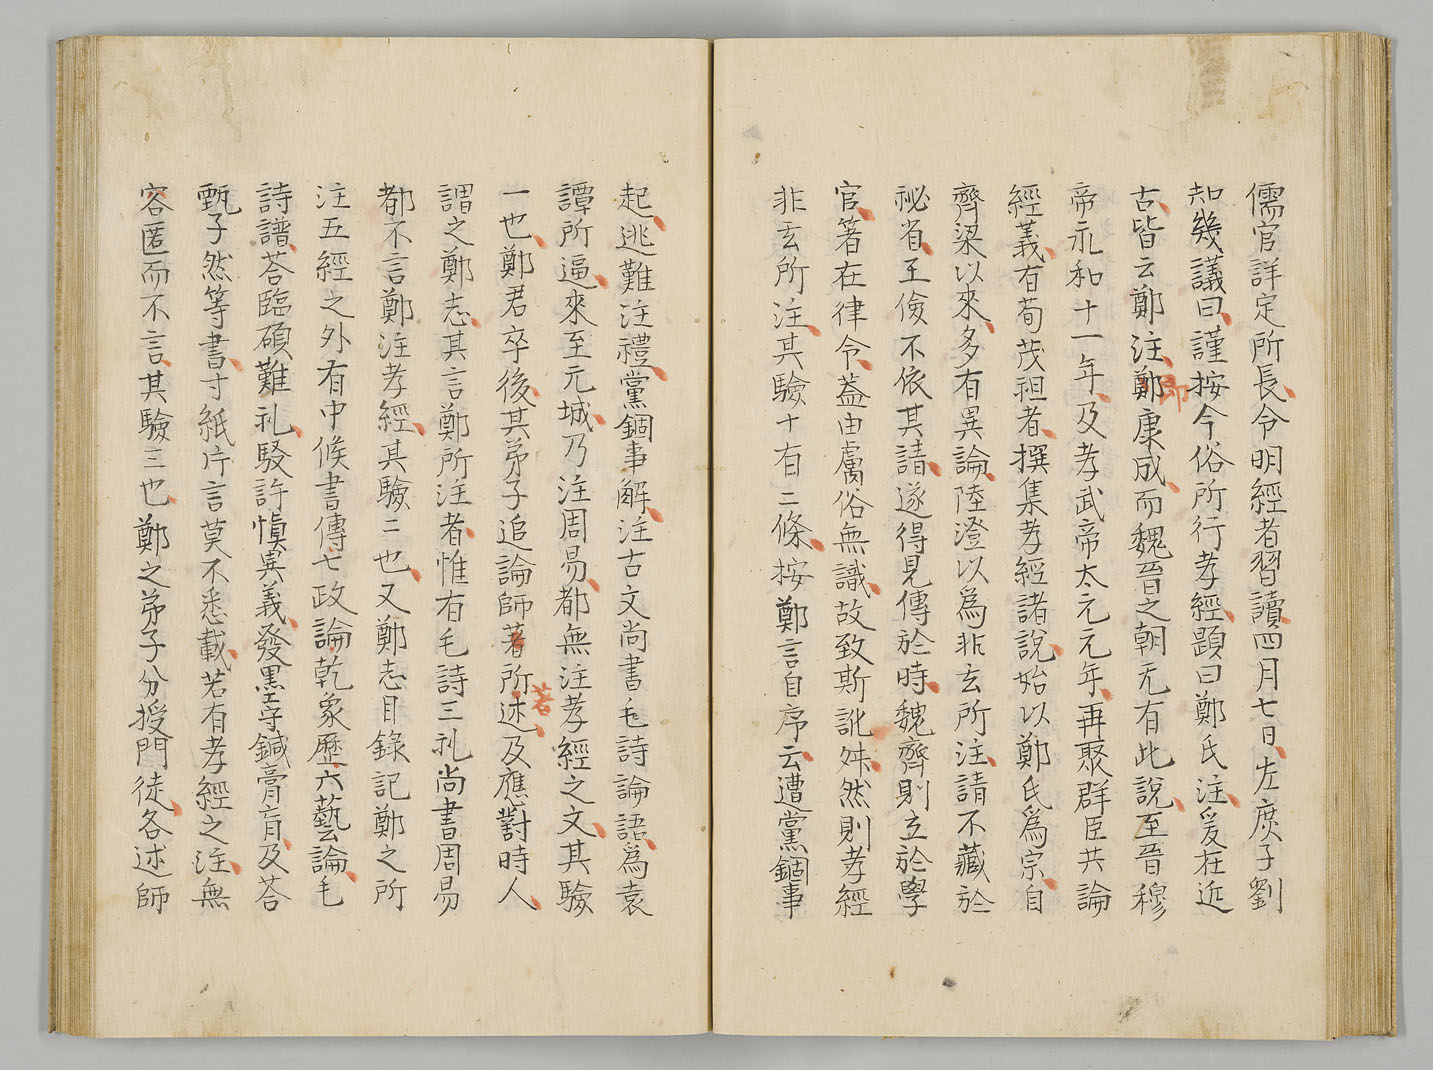 儒官詳定所長令明經者習讀四月七日左庶子劉
知幾議曰謹按今俗所行孝經題曰鄭氏注爰在近
古皆云鄭注鄭康成而魏晉之朝无有此說至晉穆
即
帝永和十一年及孝武帝太元元年再聚群臣共論
經義有荀茂祖者撰集孝經諸說始以鄭氏為宗自
齊梁以來多有異論陸澄以為非玄所注請不藏於
祕省王儉不依其請遂得見傳於時魏齊則立於學
官著在律令蓋由膚俗無識故致斯訛舛然則孝經
非玄所注其驗十有二條按鄭言自序云遭黨錮事
起逃難注禮黨錮事解注古文尚書毛詩論語為袁
譚所逼來至元城乃注周易都無注孝經之文其驗
一也鄭君卒後其弟子追論師著所述及應對時人
若
謂之鄭志其言鄭所注者惟有毛詩三礼尚書周易
都不言鄭注孝經其驗二也又鄭志目錄記鄭之所
注五經之外有中候書傳七政論乾象歷六藝論毛
詩譜荅臨碩難礼駁許慎異義發墨守鍼膏肓及荅
甄子然等書寸紙片言莫不悉載若有孝經之注無
容匿而不言其驗三也鄭之弟子分授門徒各述師